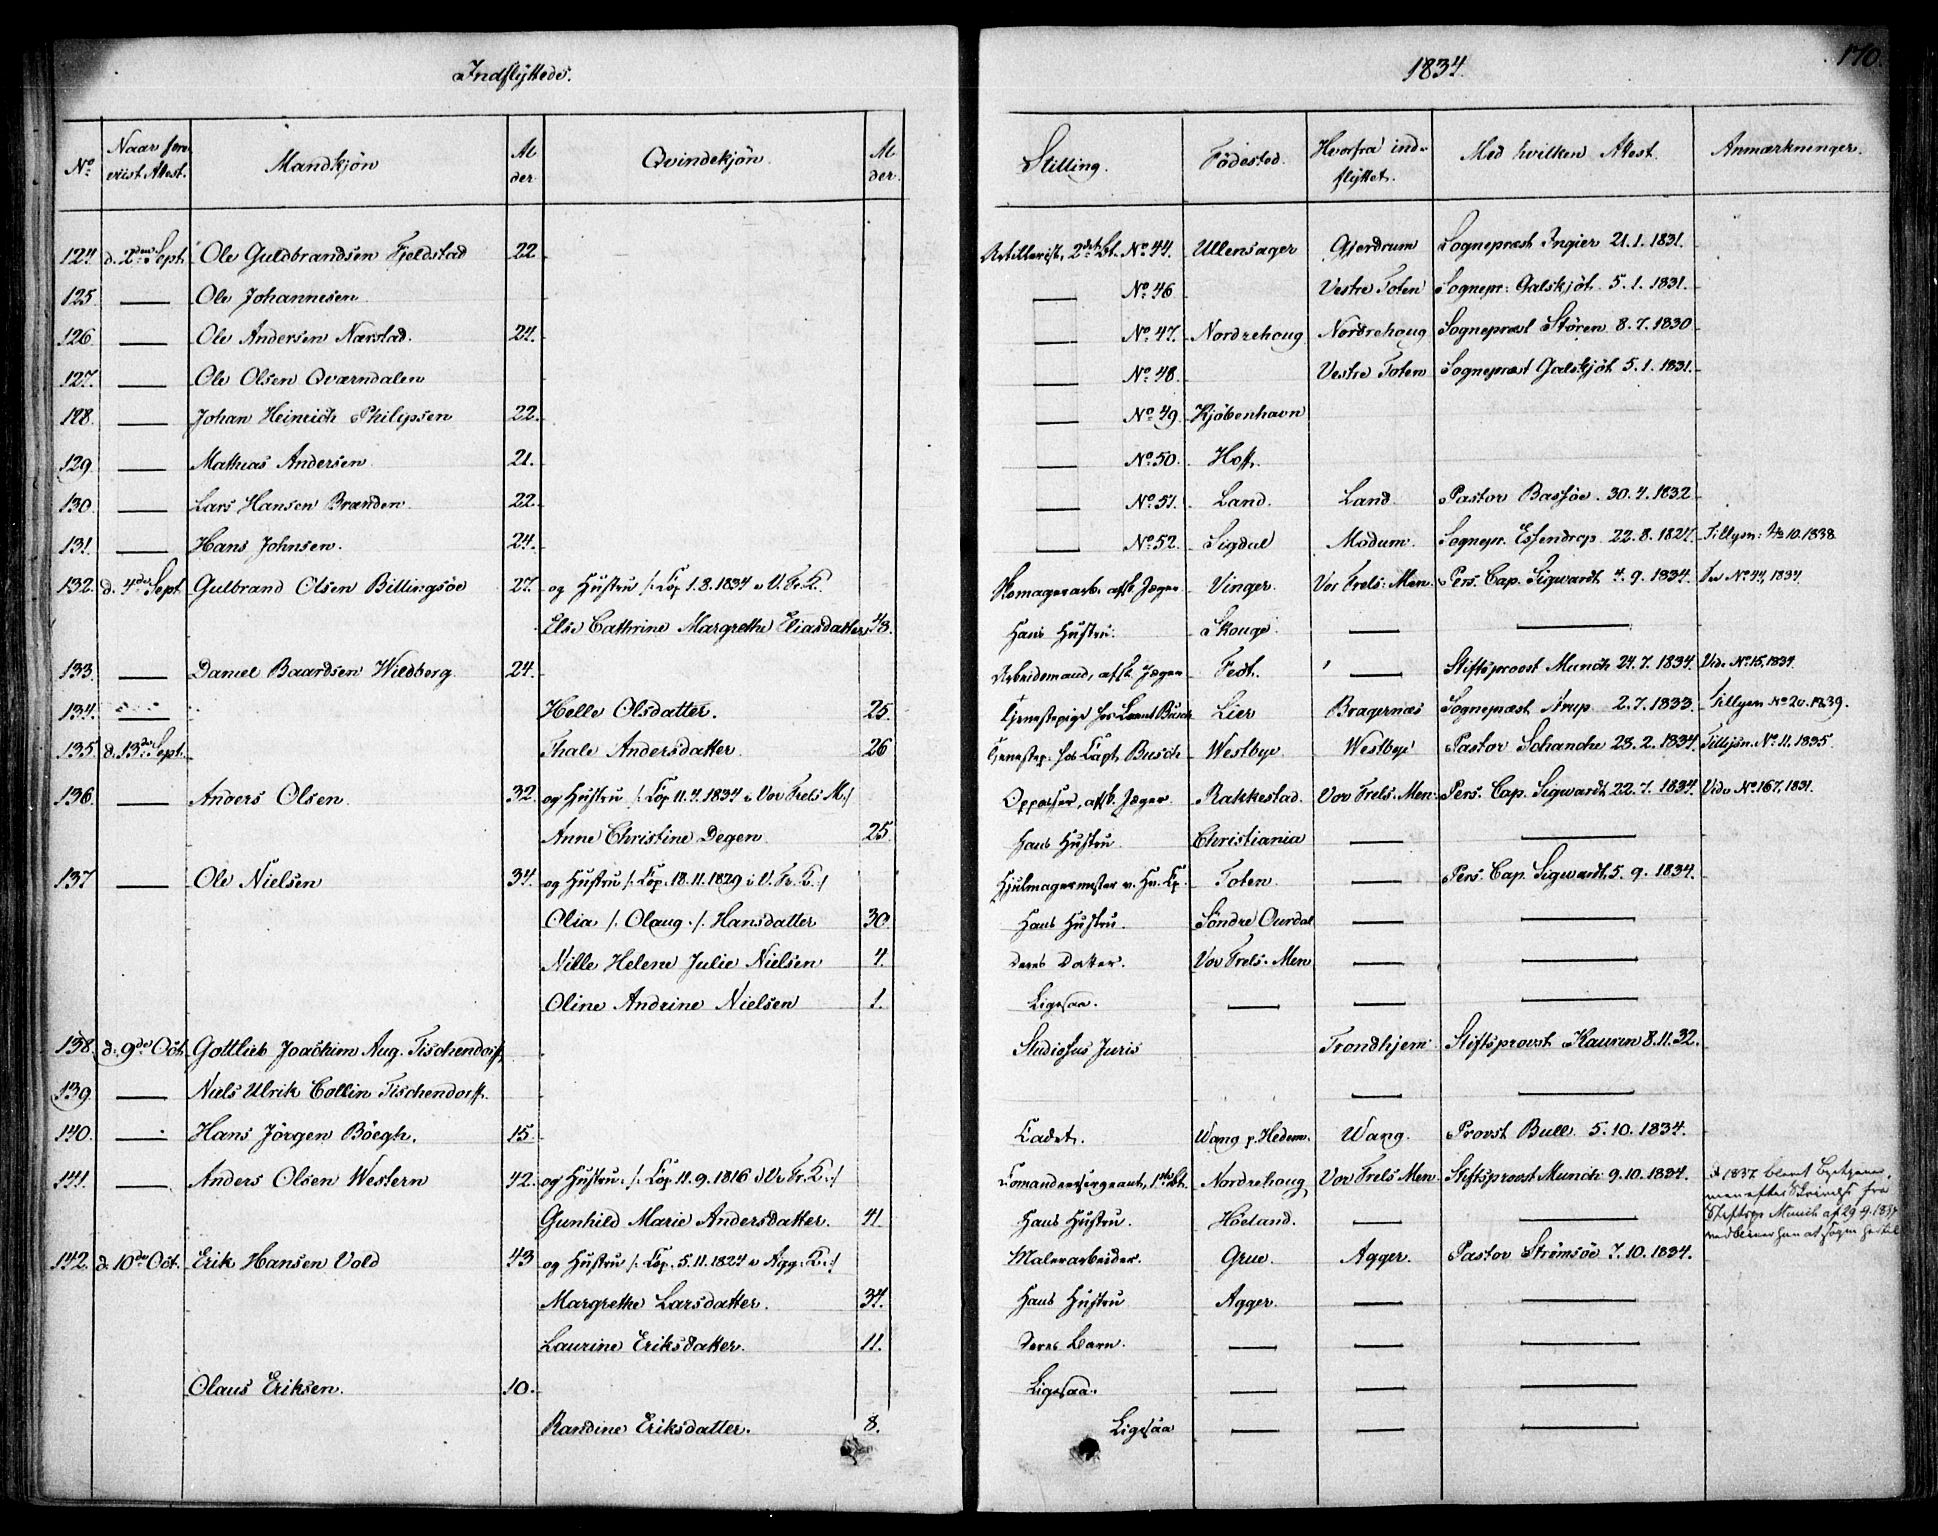 Indflÿttede.
1834.
170.
No
Naar fore-
viist Attest.
Mandkjön
Al
der
Qvindekjön
Al
der.
Stilling.
Födested.
Hvorfra ind-
flÿttet.
Med hvilken Attest.
Anmærkninger.
124 d. 2den Sept. Ole Guldbrandsen Fjeldstad 22 Artillerist, 2det Bt. No 44. Ullensager Gjerdrum Sogneprest Ingier 21.1.1831.
125 — Ole Johannesen — No 46 Vestre Toten Sognepr: Galskjöt. 5.1.1831.
126 — Ole Andersen Nærstad. 24. — No 47. Nordrehoug Nordrehoug Sogneprest Stören 8.7.1830
127. — Ole Olsen Qværndalen — No 48. Vestre Toten Sogneprest Galskjöt 5.1.1831.
128. — Johan Heinrich Philipsen 22. — No 49. Kjöbenhavn
129 — Mathias Andersen 21. — No 50. Hoff.
130 — Lars Hansen Branden 22. — No 51. Land. Land. Pastor Bassöe. 30.4.1832
131 — Hans Johnsen. 24. — No 52. Sigdal Modum. Sognepr. Essendrop 22.8.1827.
132. d. 4de Sept Gulbrand Olsen Billingsöe 27. og Hustru /: Cop 1.8.1834 i V. Fr. K. Skomagerarb. afsk. Jæger Vinger. Vor Frels: Men. Pers. Cap. Sigwardt 4.9.1834. No 44, 1834
Else Cathrine Margrethe Eliasdatter 48. Hans Hustru. Skouge. — —
133. — Daniel Baardsen Wildberg 24. Arbeidsmand, afsk. Jæger Fedt. — Stiftsprovst Munch 24.7.1834. Vide No 15, 1834
134. — Helle Olsdatter. 25. Tjenestepige hos Busch Lier Bragernæs Sogneprest Arup 2.7.1833. Tillysn No 20.1839.
135. d. 13de Sept. Thale Andersdatter. 26 Tjenestep. hos Capt. Busch Westbye Westbye Pastor Schanche 28.2.1834. Tillysn. No 11.1835
136. — Anders Olsen 32. og Hustru /: Cop 11.4.1834 i Vor Frels M :/ Oppasser, afsk. Jæger Rakkestad. Vor Frels. Men. Pers. Cap. Sigwardt 22.7.1834. Vide No 167, 1831.
Anne Christine Degen 25. Hans Hustru Christiania — —
137 — Ole Nielsen 34. og Hustru /: Cop. 18.11.1829 i V. Fr. K :/ Hjulmagermester Toten — Pers. Cap. Sigwardt, 5.9.1834.
Olia /: Olaug :/ Hansdatter 30 Hans Hustru. Söndre Ourdal — —
Nille Helene Julie Nielsen 4. Deres Datter. Vor Frels. Men — —
Oline Andrine Nielsen 1. Ligesaa. — — —
138. d. 9de Oct. Gottlieb Joachim Aug. Tischendorff Studiosus Juris Trondhjem Stiftsprovst Kaurin 8.11.32.
139 — Niels Ulrik Collin Tischendorff. — —
140. — Hans Jörgen Böegh. 15. Cadet. Wang p. Hedem. Wang. Provst Bull 5.10.1834.
141. — Anders Olsen Western 42. og Hustru. /: Cop 11.9.1816 i V. Fr. K :/ Comandeersergeant, 1ste Bt. Nordrehoug Vor Frels Men Stiftsprovst Munch 9.10.1834.
Gunhild Marie Andersdatter. 41 Hans Hustru. Höeland. — —
142. d. 10de Oct. Erik Hansen Vold 43 og Hustru /: Cop. 5.11.1824 i Agg. K :/ Malerarbeider. Grue. Agger. Pastor Strömsöe 7.10.1834.
Margrethe Larsdatter. 34. Hans Hustru Agger. — —
Laurine Eriksdatter. 11. Deres Barn. — — —
Olaus Eriksen. 10. Ligesaa. — — —
Randine Eriksdatter. 8. Ligesaa — — —